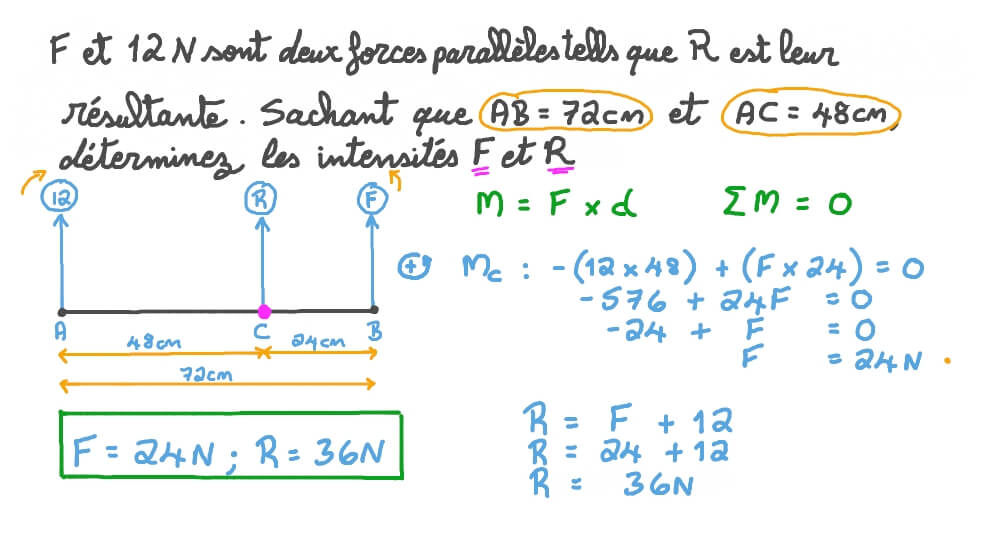 F et 12 N sont deux forces parallèles tells que R est leur
résultante. Sachant que AB = 72cm et AC = 48cm,
déterminez les intensités F et R
12 R F
M = F x d ΣM = 0
+ Mc : -(12 x 48) + (F x 24) = 0
-576 + 24F = 0
-24 + F = 0
F = 24N.
A C B
48cm 24cm
72cm
F = 24N ; R = 36N
R = F + 12
R = 24 + 12
R = 36N